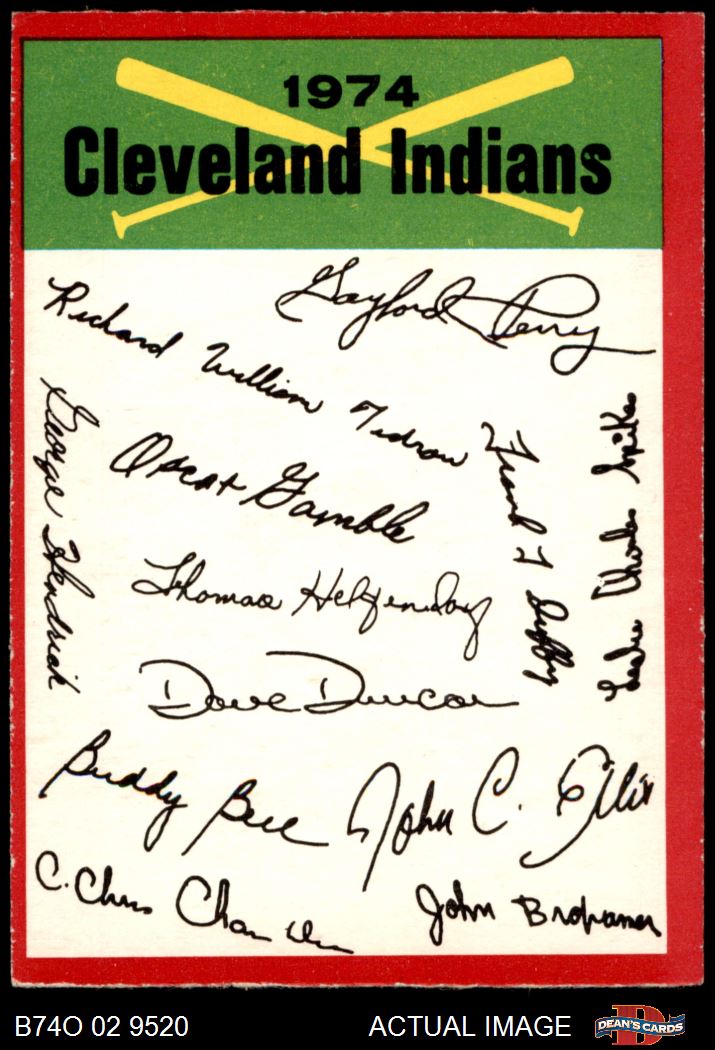 1974
Cleveland Indians
Gaylord Perry
Richard William Tidrow
George Hendrick
Oscar Gamble
Frank T Duffy
Leslie Charles Spikes
Thomas Hilgendorf
Dave Duncan
Buddy Bell
John C. Ellis
C. Chris Chambliss
John Brohamer
B74O 02 9520
ACTUAL IMAGE
D
DEAN'S CARDS